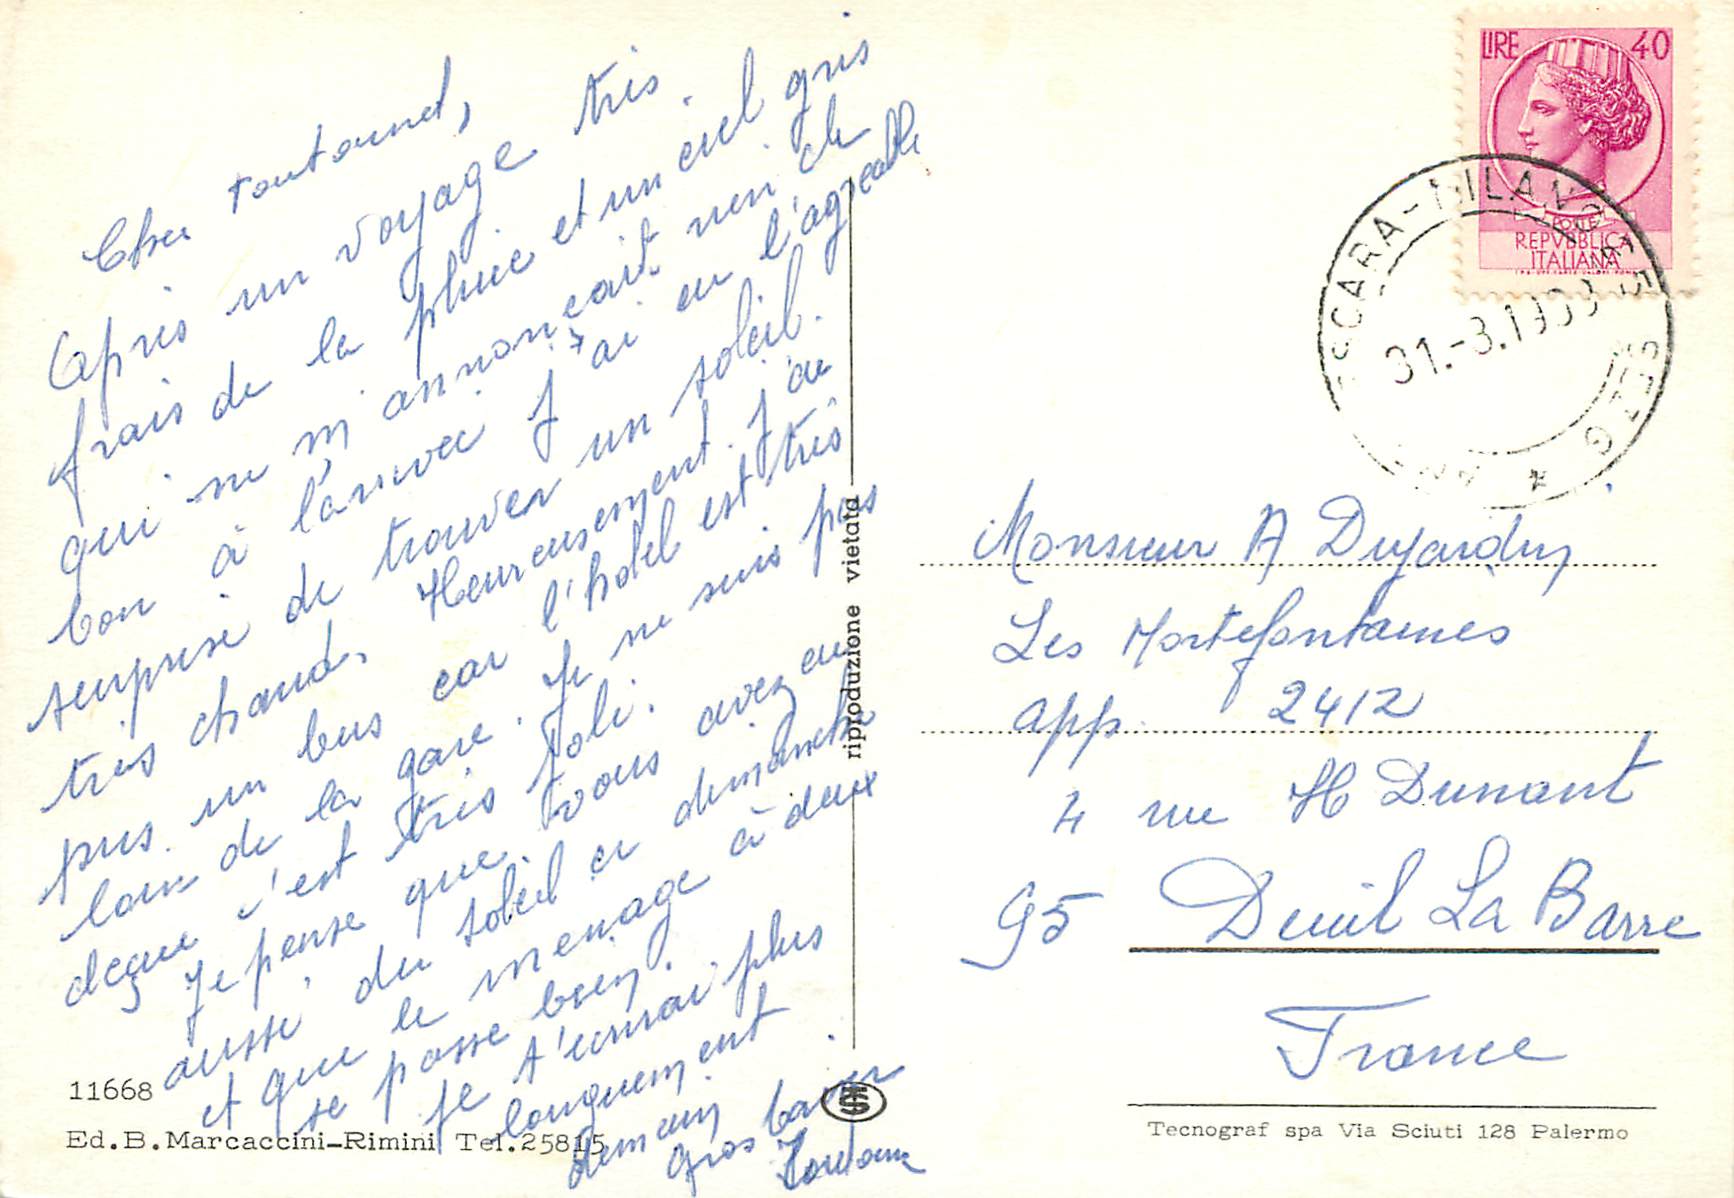 Cher toutounet,
Après un voyage très
frais de la pluie et un ciel gris
qui ne m'annonçait rien de
bon à l'arrivée J'ai eu l'agreable
surprise de trouver un soleil
très chaud. Heureusement J'ai
pris un bus car l'hotel est très
loin de la gare. Je ne suis pas
deçue c'est très Joli.
Je pense que vous avez eu
aussi du soleil ce dimanche
et que le menage à deux
se passe bien.
Je t'ecrirai plus
longuement
demain
Gros baiser
LIRE 40
POSTE
REPVBBLICA
ITALIANA
31.-3.19
Monsieur A Dujardin
Les Mortefontaines
app. 2412
4 rue H Dunant
95 Deuil La Barre
France
riproduzione vietata
11668
Ed.B.Marcaccini-Rimini Tel.25815
Tecnograf spa Via Sciuti 128 Palermo